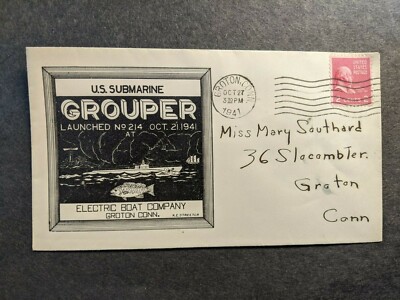 U.S. SUBMARINE
GROUPER
LAUNCHED No 214 OCT. 21 1941
AT
ELECTRIC BOAT COMPANY
GROTON CONN.
GROTON, CONN.
OCT 27
1941
UNITED STATES POSTAGE
Miss Mary Southard
36 Slocomb Ter.
Groton
Conn